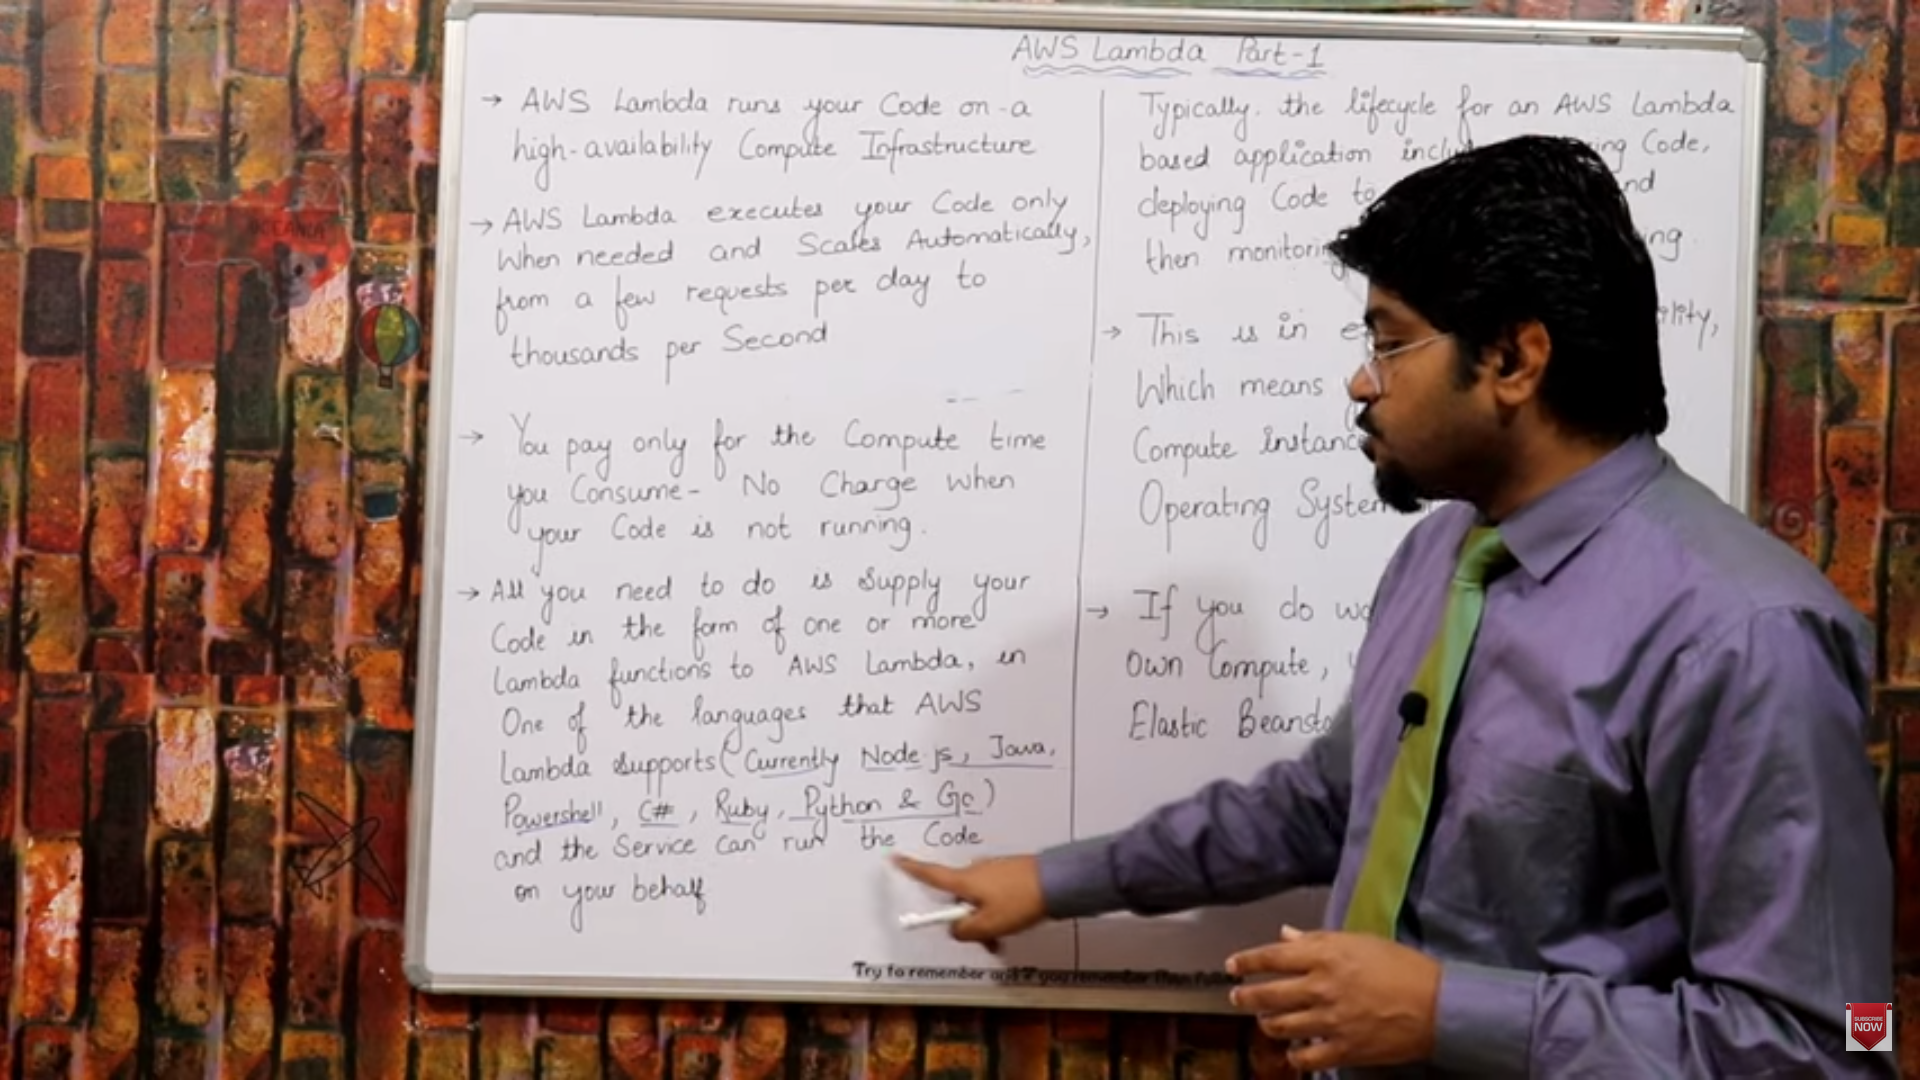 AWS Lambda Part-1
→ AWS Lambda runs your Code on-a
high-availability Compute Infrastructure
→ AWS Lambda executes your Code only
When needed and Scales Automatically,
from a few requests per day to
thousands per Second
→ You pay only for the Compute time
you Consume- No Charge when
your Code is not running.
→ All you need to do is Supply your
Code in the form of one or more
Lambda functions to AWS Lambda, in
One of the languages that AWS
Lambda supports (Currently Node js, Java,
Powershell, C#, Ruby, Python & Go)
and the Service Can run the Code
on your behalf
Typically. the lifecycle for an AWS Lambda
based application Code,
deploying Code to
then
→ This is in
Which means
Compute
Operating System
→ If you do
Own Compute,
Elastic
Try to remember
OCEANIA
SUBSCRIBE
NOW